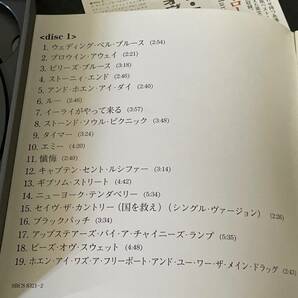 <disc 1>
1. ウェディング・ベル・ブルース (2:54)
2. ブロウイン・アウェイ (2:21)
3. ビリーズ・ブルース (3:18)
4. ストーニィ・エンド (2:46)
5. アンド・ホエン・アイ・ダイ (2:40)
6. ルー (2:46)
7. イーライがやって来る (3:57)
8. ストーンド・ソウル・ピクニック (3:48)
9. タイマー (3:24)
10. エミー (4:20)
11. 懺悔 (2:40)
12. キャプテン・セント・ルシファー (3:14)
13. ギブソム・ストリート (4:42)
14. ニューヨーク・テンダベリー (5:34)
15. セイヴ・ザ・カントリー (国を救え) (シングル・ヴァージョン) (2:26)
16. ブラックパッチ (3:34)
17. アップステアーズ・バイ・ア・チャイニーズ・ランプ (5:35)
18. ビーズ・オヴ・スウェット (4:48)
19. ホエン・アイ・ワズ・ア・フリーポート・アンド・ユー・ワー・ザ・メイン・ドラッグ (2:43)